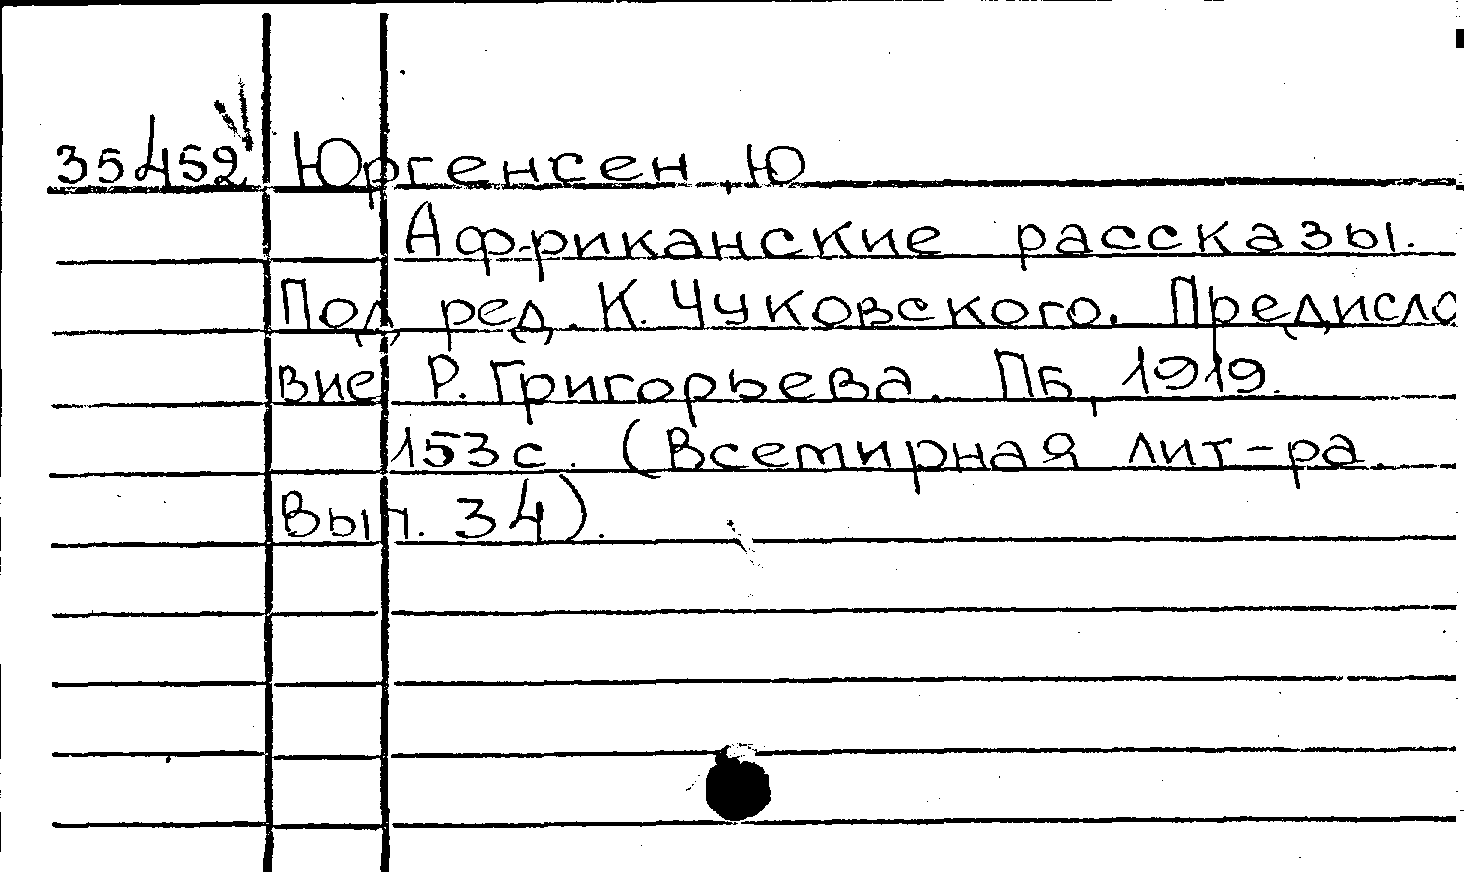 35452 Юргенсен, Ю
Африканские рассказы.
Под ред. К. Чуковского. Предисло
вие Р. Григорьева. Пб, 1919.
153с. (Всемирная лит-ра.
Вып. 34).